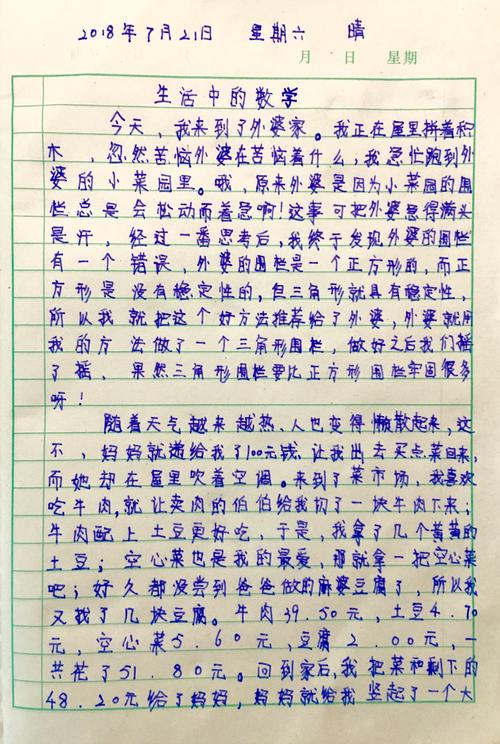 2018年7月21日 星期六 晴
月 日 星期
生活中的数学
今天，我来到了外婆家。我正在屋里拼着积
木，忽然苦恼外婆在苦恼着什么；我急忙跑到外
婆的小菜园里。哦，原来外婆是因为小菜园的围
栏总是会松动而着急啊！这事可把外婆急得满头
是汗，经过一番思考后，我终于发现外婆的围栏
有一个错误，外婆的围栏是一个正方形的，而正
方形是没有稳定性的，但三角形就具有稳定性，
所以我就把这个好方法推荐给了外婆，外婆就用
我的方法做了一个三角形围栏，做好之后我们摇
了摇，果然三角形围栏要比正方形围栏牢固很多
呀！
随着天气越来越热、人也变得懒散起来，这
不，妈妈就递给我了100元钱，让我出去买点菜回来，
而她却在屋里吹着空调。来到了菜市场，我喜欢
吃牛肉，就让卖肉的伯伯给我切了一块牛肉下来；
牛肉配上土豆更好吃，于是，我拿了几个黄黄的
土豆；空心菜也是我的最爱，那就拿一把空心菜
吧；好久都没尝到爸爸做的麻婆豆腐了，所以我
又找了几块豆腐。牛肉39.50元，土豆4.70
元，空心菜5.60元，豆腐2.00元，一
共花了51.80元。回到家后，我把菜和剩下的
48.20元给了妈妈，妈妈就给我竖起了一个大